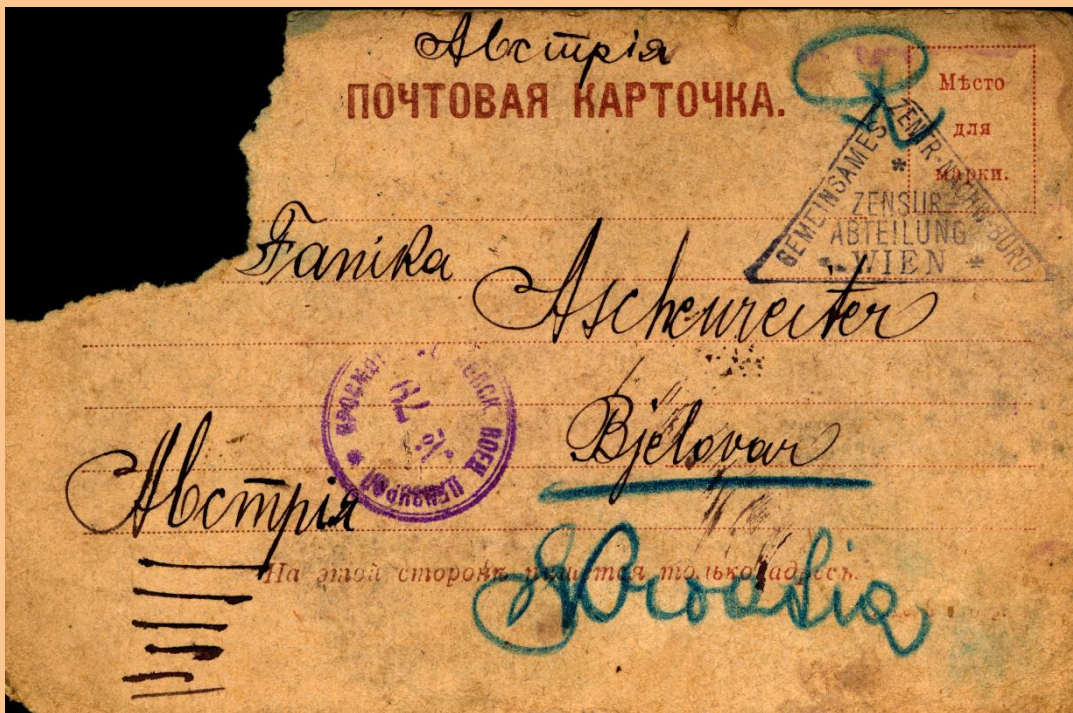 Австрія
ПОЧТОВАЯ КАРТОЧКА.
Мѣсто
для
марки.
GEMEINSAMES ZENTR.-NACHW.-BÜRO
ZENSUR-
ABTEILUNG
WIEN
Fanika
Aschenreiter
ВОЕН ЦЕНЗУРОЙ
Bjelovar
Австрія
На этой сторонѣ пишется только адресъ.
Kroatia